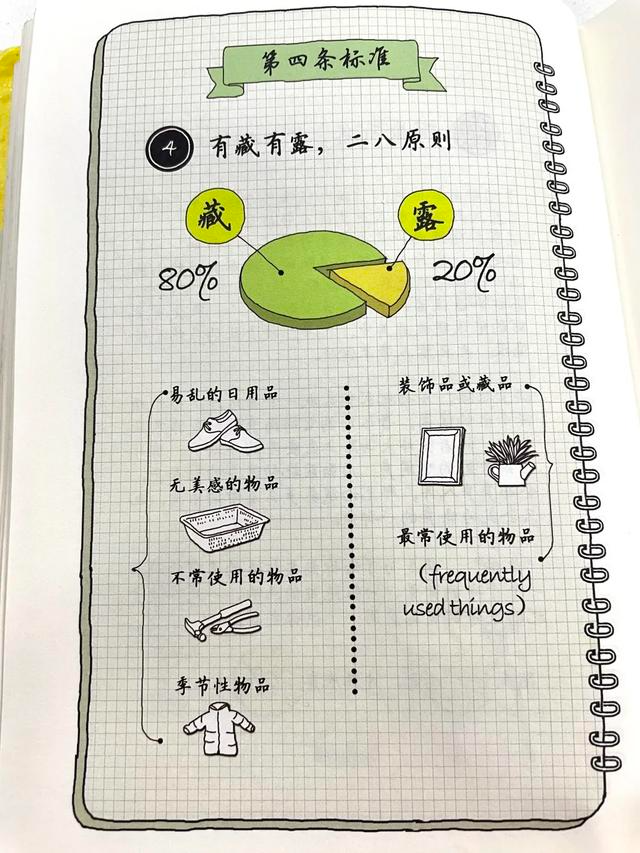 第四条标准
4
有藏有露，二八原则
藏
露
80%
20%
易乱的日用品
无美感的物品
不常使用的物品
季节性物品
装饰品或藏品
最常使用的物品
(frequently
used things)